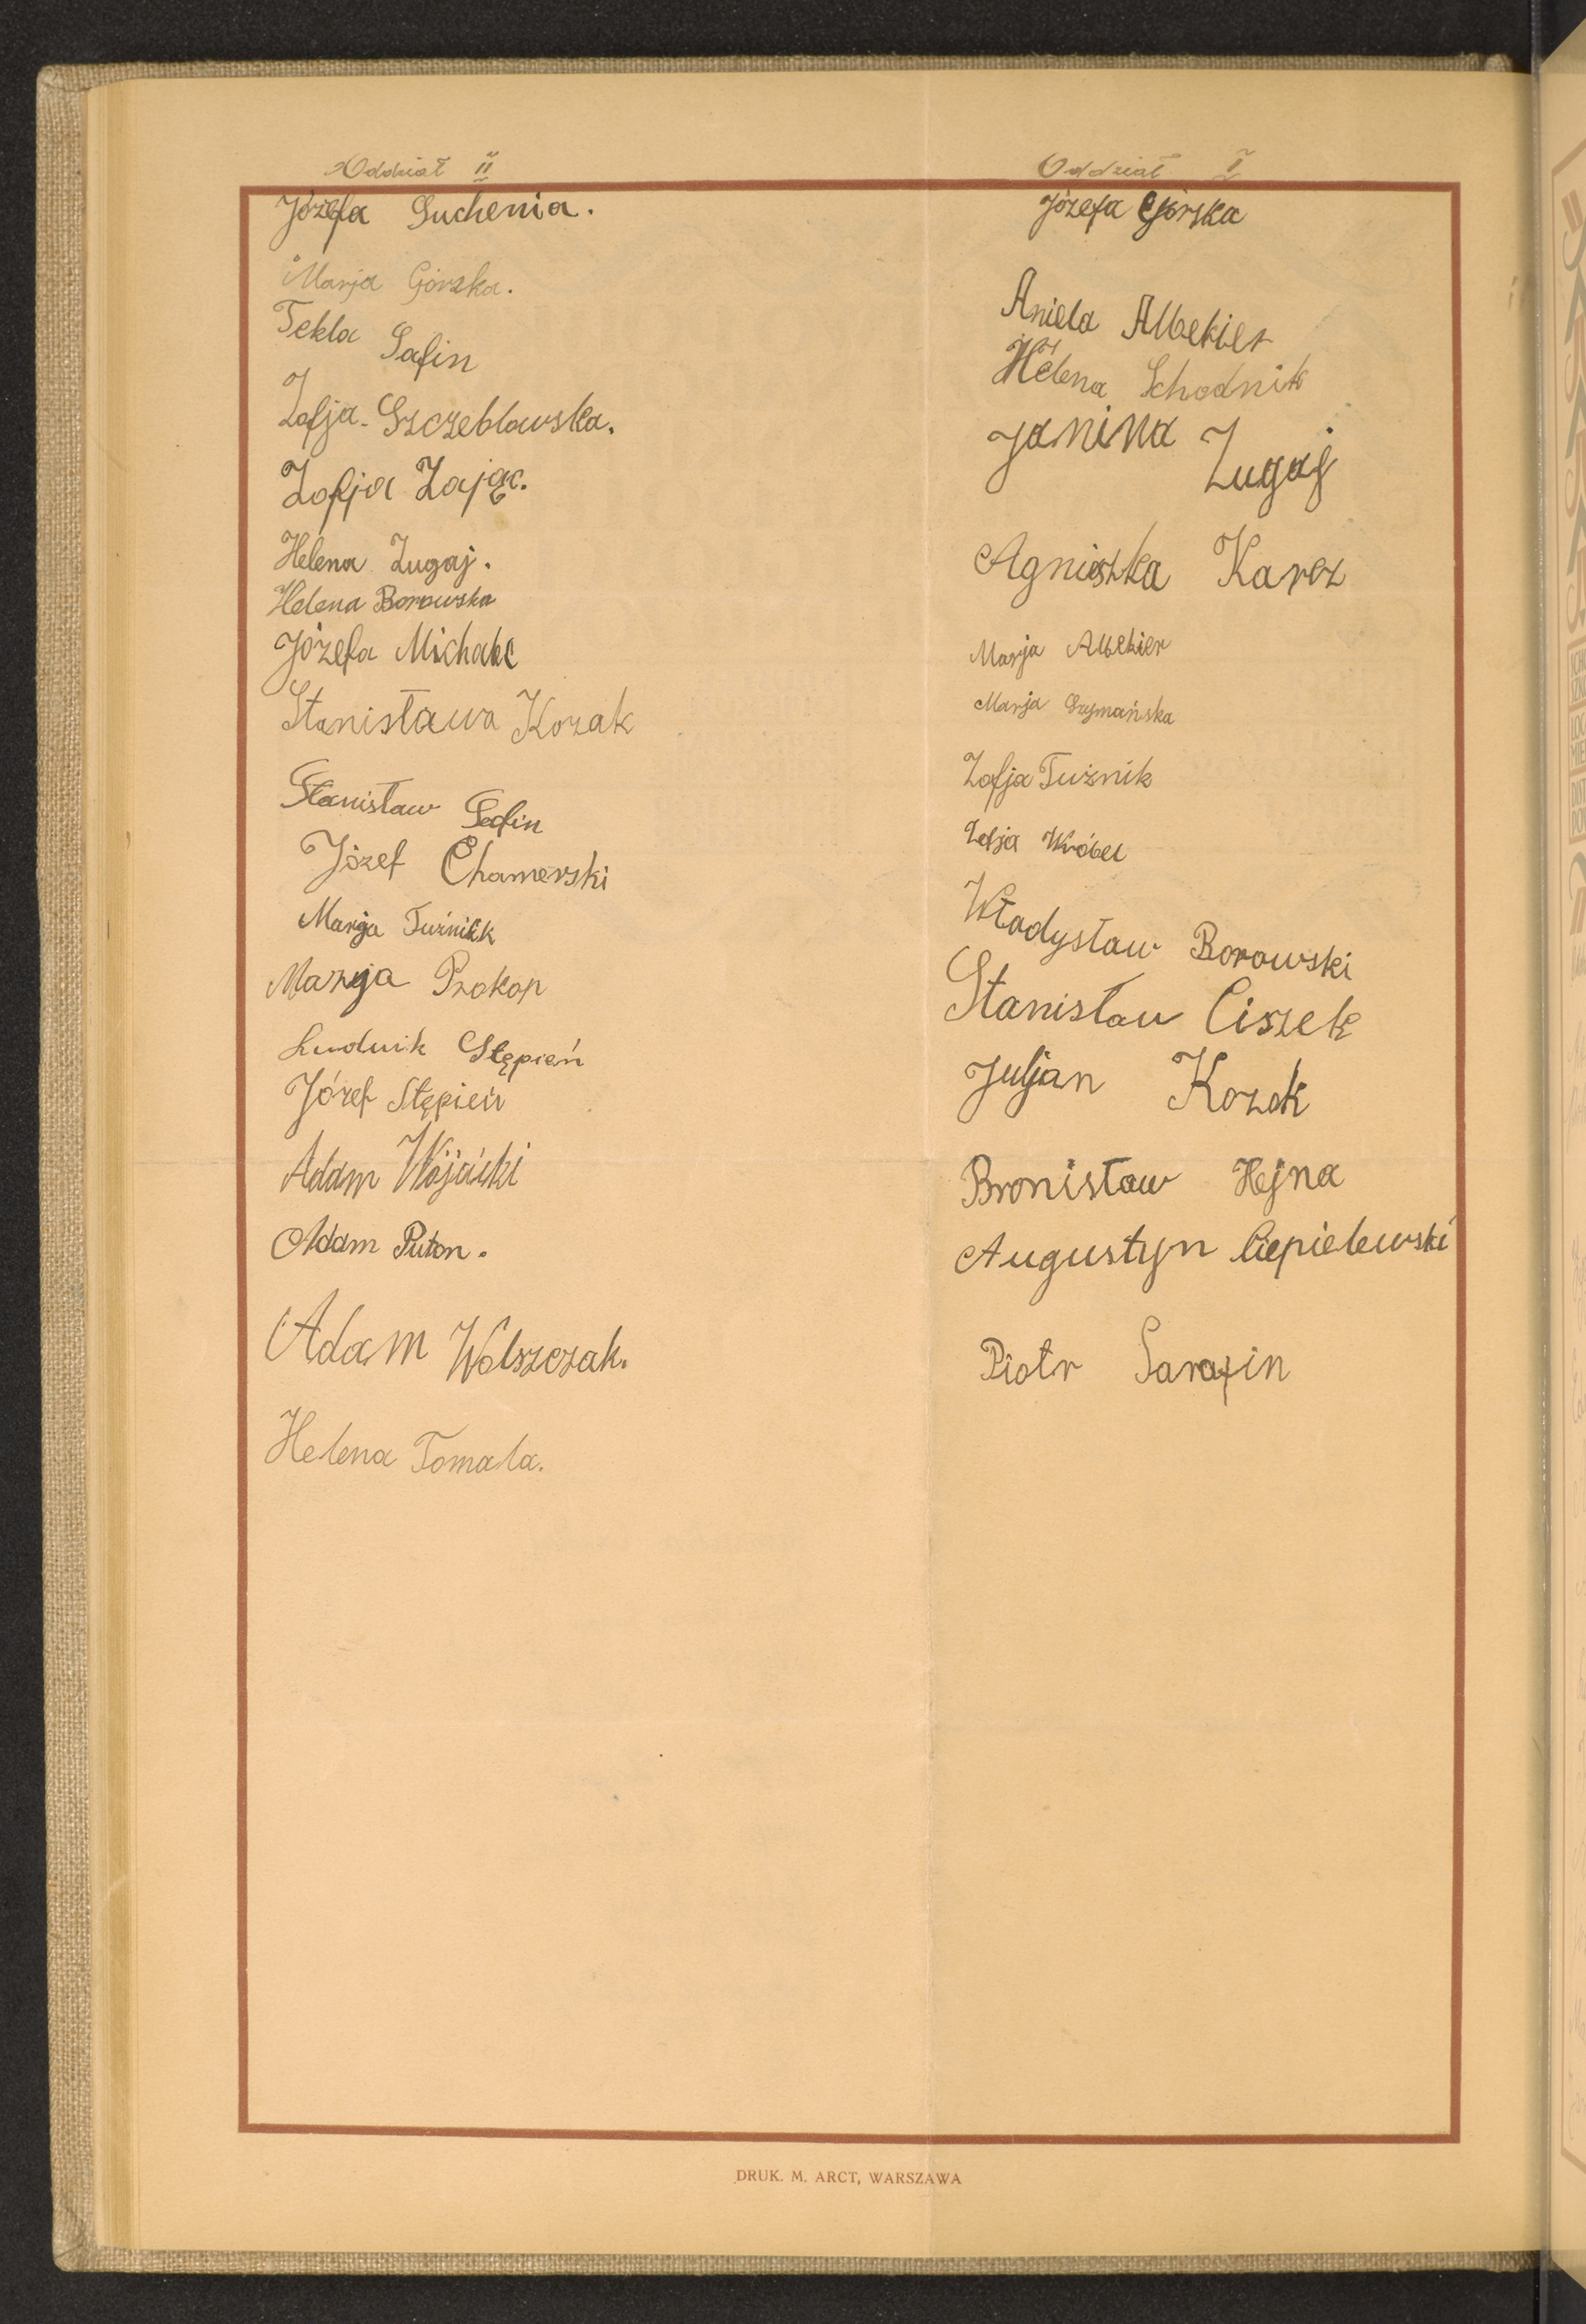 Oddział II
Józefa Suchenia.
Marja Górska.
Tekla Safin
Zofja Szczeblowska.
Zofja Zając.
Helena Zugaj.
Helena Borowska
Józefa Michalec
Stanisława Kozak
Stanisław Safin
Józef Chamerski
Marja Tuźnik
Marja Prokop
Ludwik Stępień
Józef Stępień
Adam Wójcicki
Adam Puton.
Adam Wolszczak.
Helena Tomala.
Oddział I
Józefa Górska
Aniela Albekier
Helena Schodnik
Janina Zugaj
Agnieszka Karcz
Marja Albekier
Marja Szymańska
Zofja Tuźnik
Zofja Wróbel
Władysław Borowski
Stanisław Ciszek
Juljan Kozak
Bronisław Hejna
Augustyn Ciepielewski
Piotr Sarafin
DRUK. M. ARCT, WARSZAWA